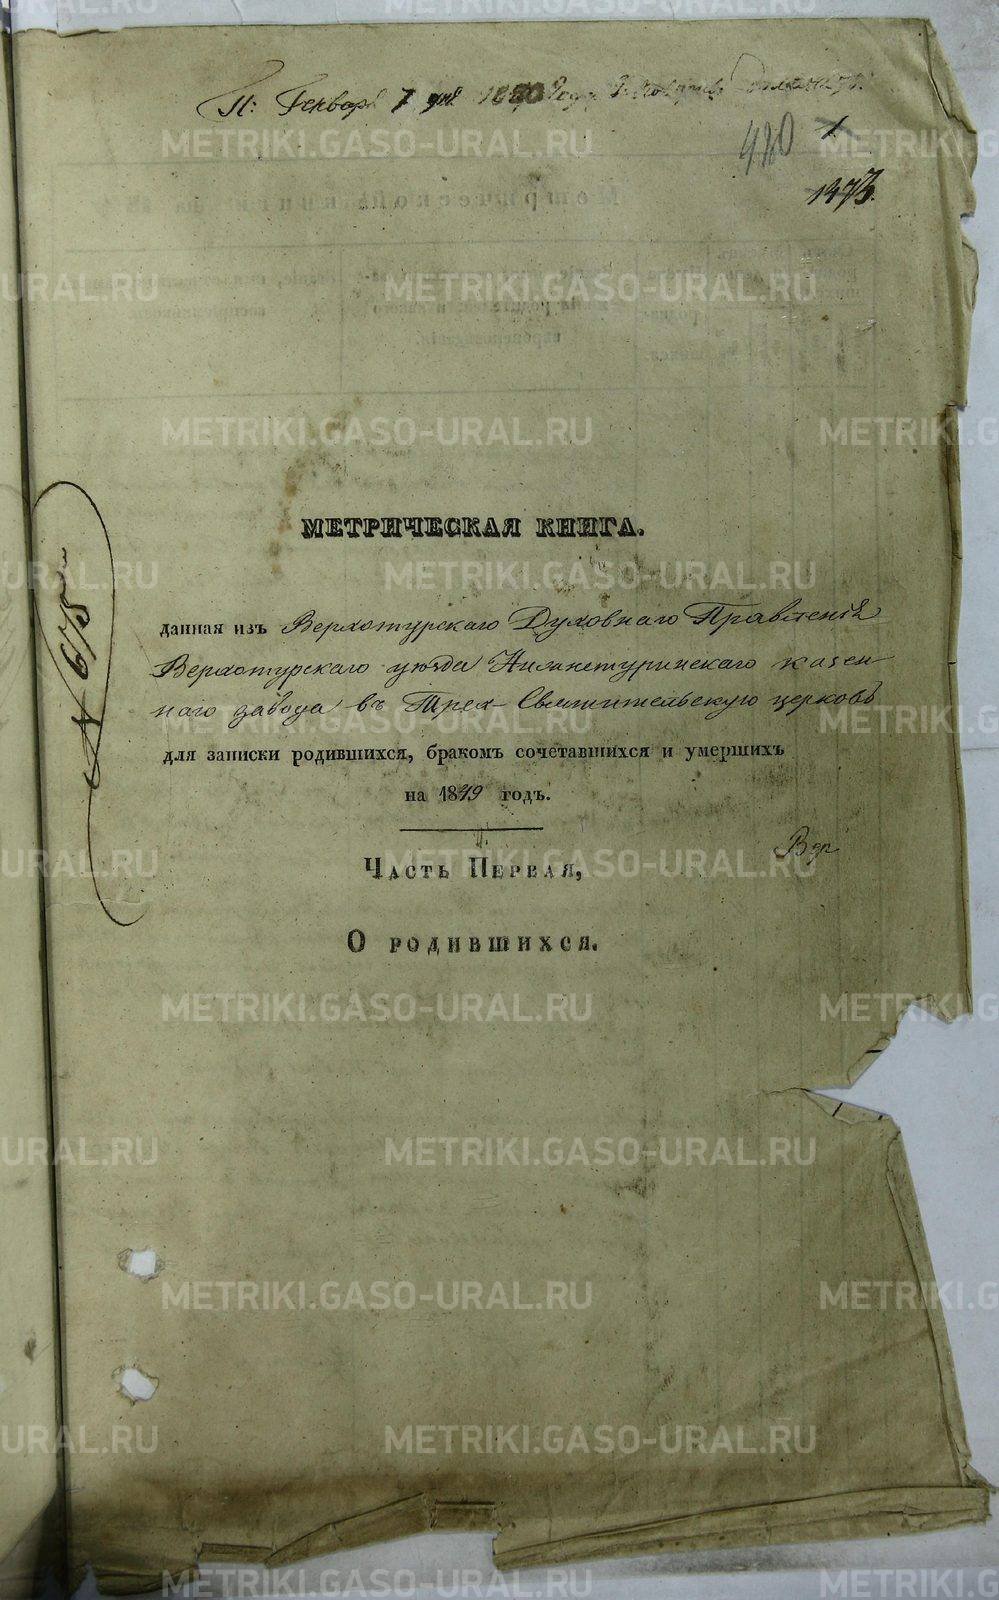 П: Генваря 7 дня 1850 года
480 1
1373.
МЕТРИЧЕСКАЯ КНИГА.
данная изъ Верхотурскаго Духовнаго Правленія
Верхотурскаго уѣзда Нижнетуринскаго казен
наго завода въ Трех-Святительскую церковь
для записки родившихся, бракомъ сочетавшихся и умершихъ
на 1849 годъ.
Вер
Часть Первая,
О родившихся.
№ 675
METRIKI.GASO-URAL.RU